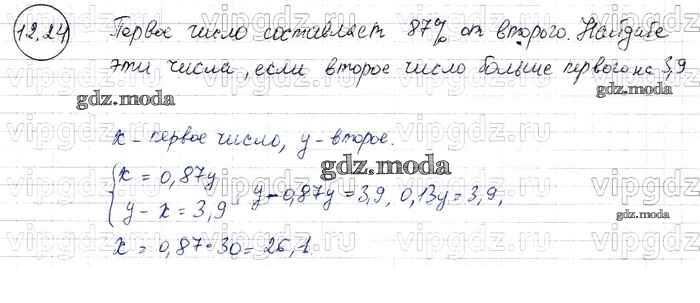 12.24 Первое число составляет 87% от второго. Найдите
эти числа, если второе число больше первого на 3,9
gdz.moda
gdz.moda
x - первое число, y - второе.
gdz.moda
{ x = 0,87y
y - x = 3,9 y - 0,87y = 3,9, 0,13y = 3,9,
gdz.moda
x = 0,87·30 = 26,1.
vipgdz.ru